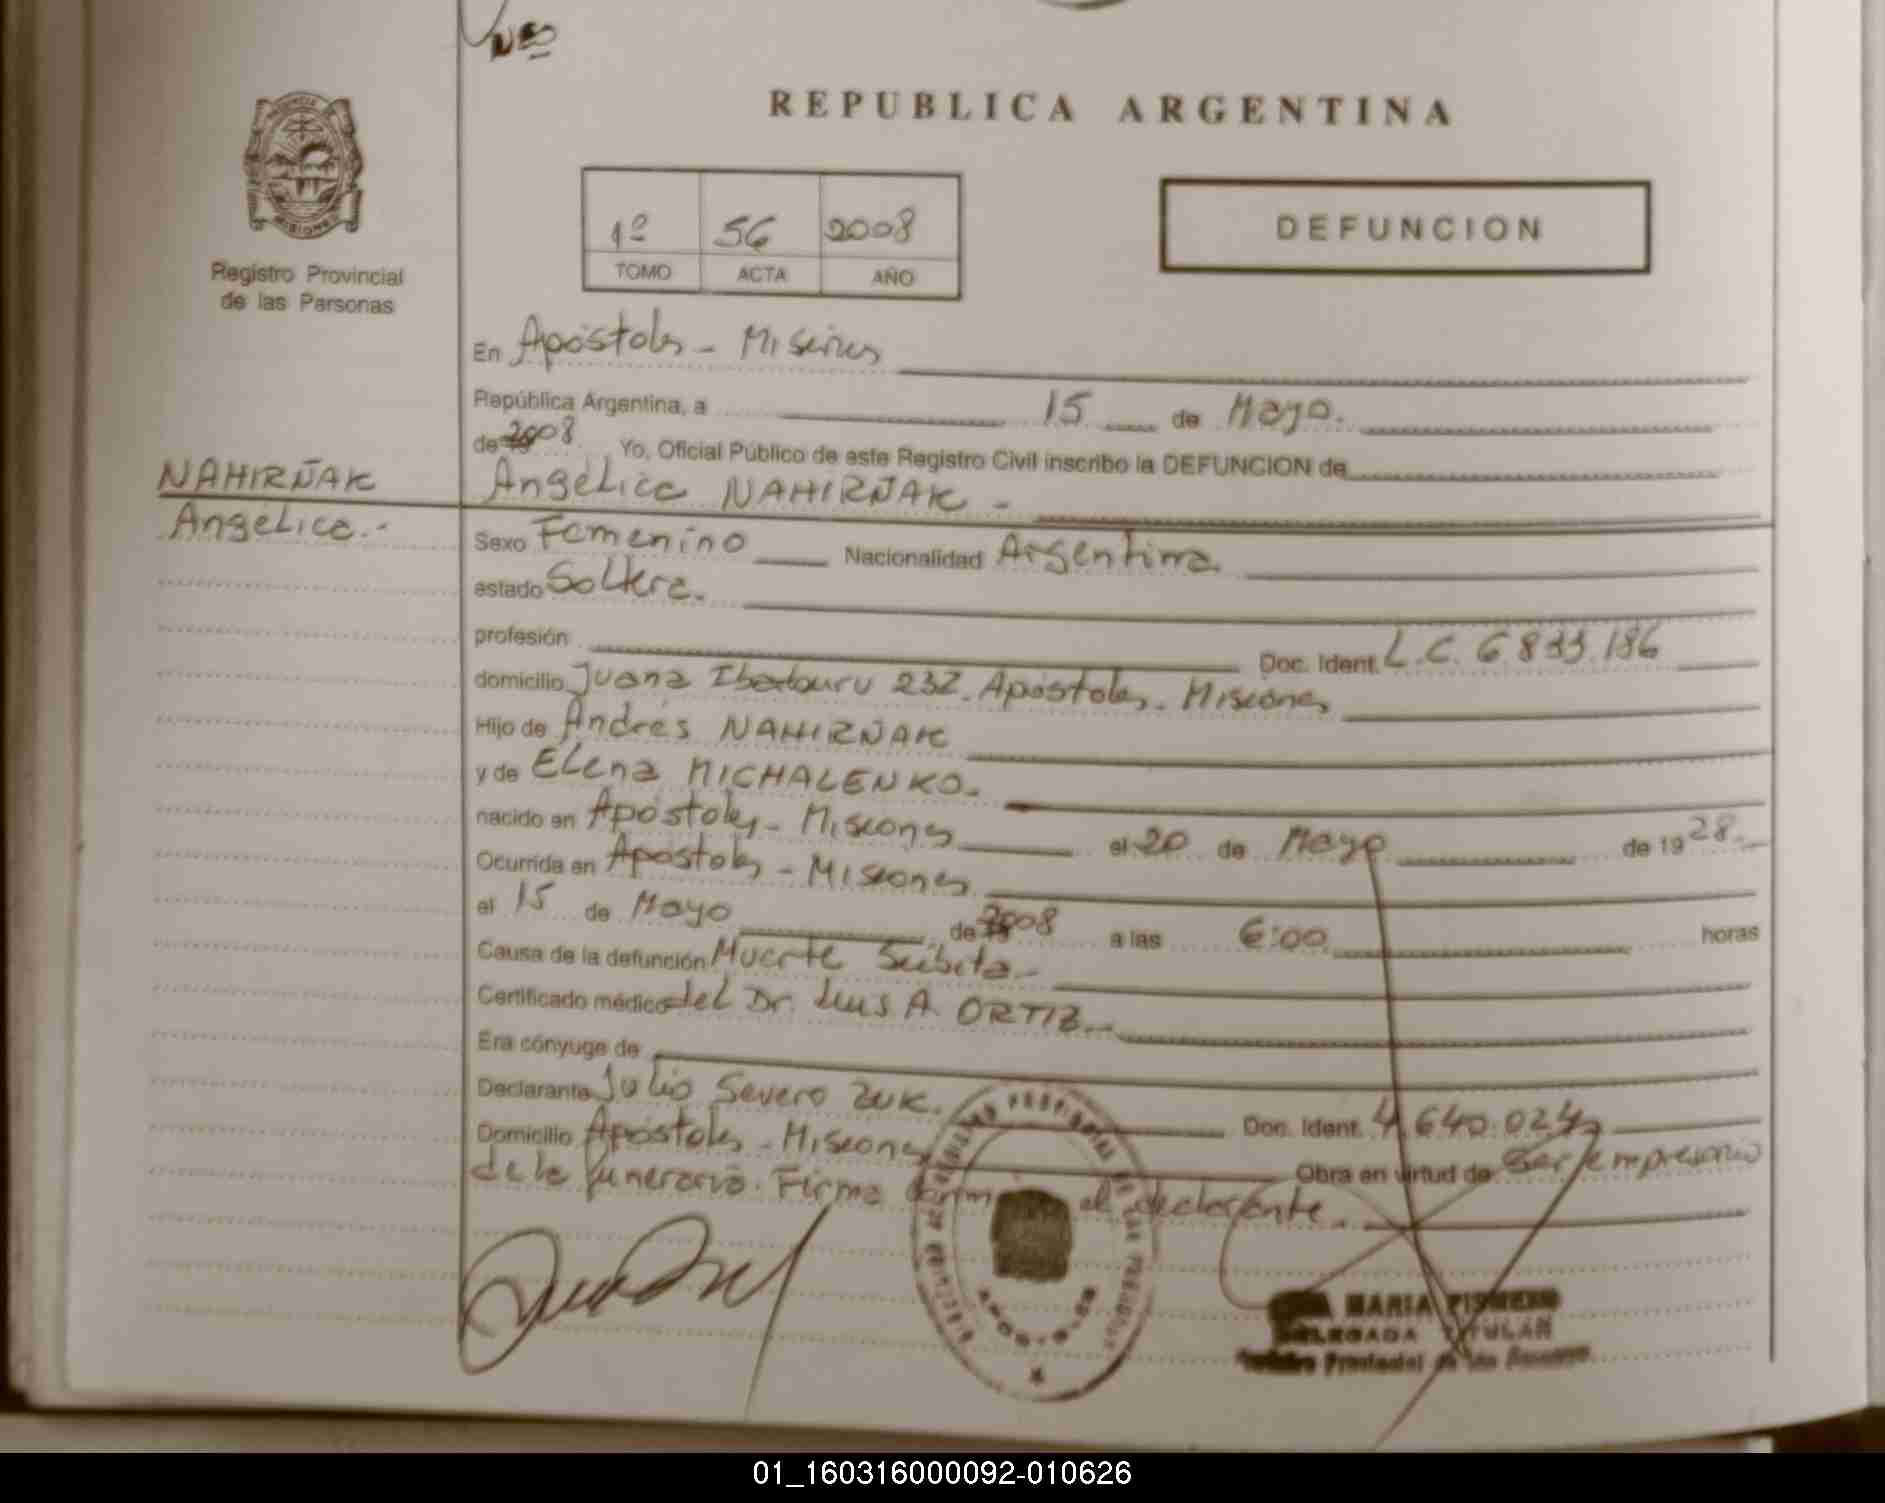 REPUBLICA ARGENTINA
PROVINCIA
MISIONES
Registro Provincial
de las Personas
1º 56 2008
TOMO ACTA AÑO
DEFUNCION
En Apóstoles - Misiones
República Argentina, a 15 de Mayo.
de 2008 Yo, Oficial Público de este Registro Civil inscribo la DEFUNCION de
NAHIRÑAK
Angélica.-
Angélica NAHIRÑAK -
Sexo Femenino Nacionalidad Argentina.
estado Soltera.
profesión Doc. Ident. L.C. 6833.186
domicilio Juana 232. Apóstoles. Misiones
Hijo de Andrés NAHIRÑAK
y de Elena MICHALENKO.
nacido en Apóstoles - Misiones el 20 de Mayo de 1928.-
Ocurrida en Apóstoles - Misiones
el 15 de Mayo de 2008 a las 6:00 horas
Causa de la defunción Muerte Súbita.-
Certificado médico del Dr. Luis A. ORTIZ.-
Era cónyuge de
Declarante Julio Severo ZUK. Doc. Ident. 4.640.024
Domicilio Apóstoles - Misiones Obra en virtud de Ser empresario
de la funeraria. Firma el declarante.
MARIA
DELEGADA TITULAR
Registro Provincial de las Personas
01_160316000092-010626